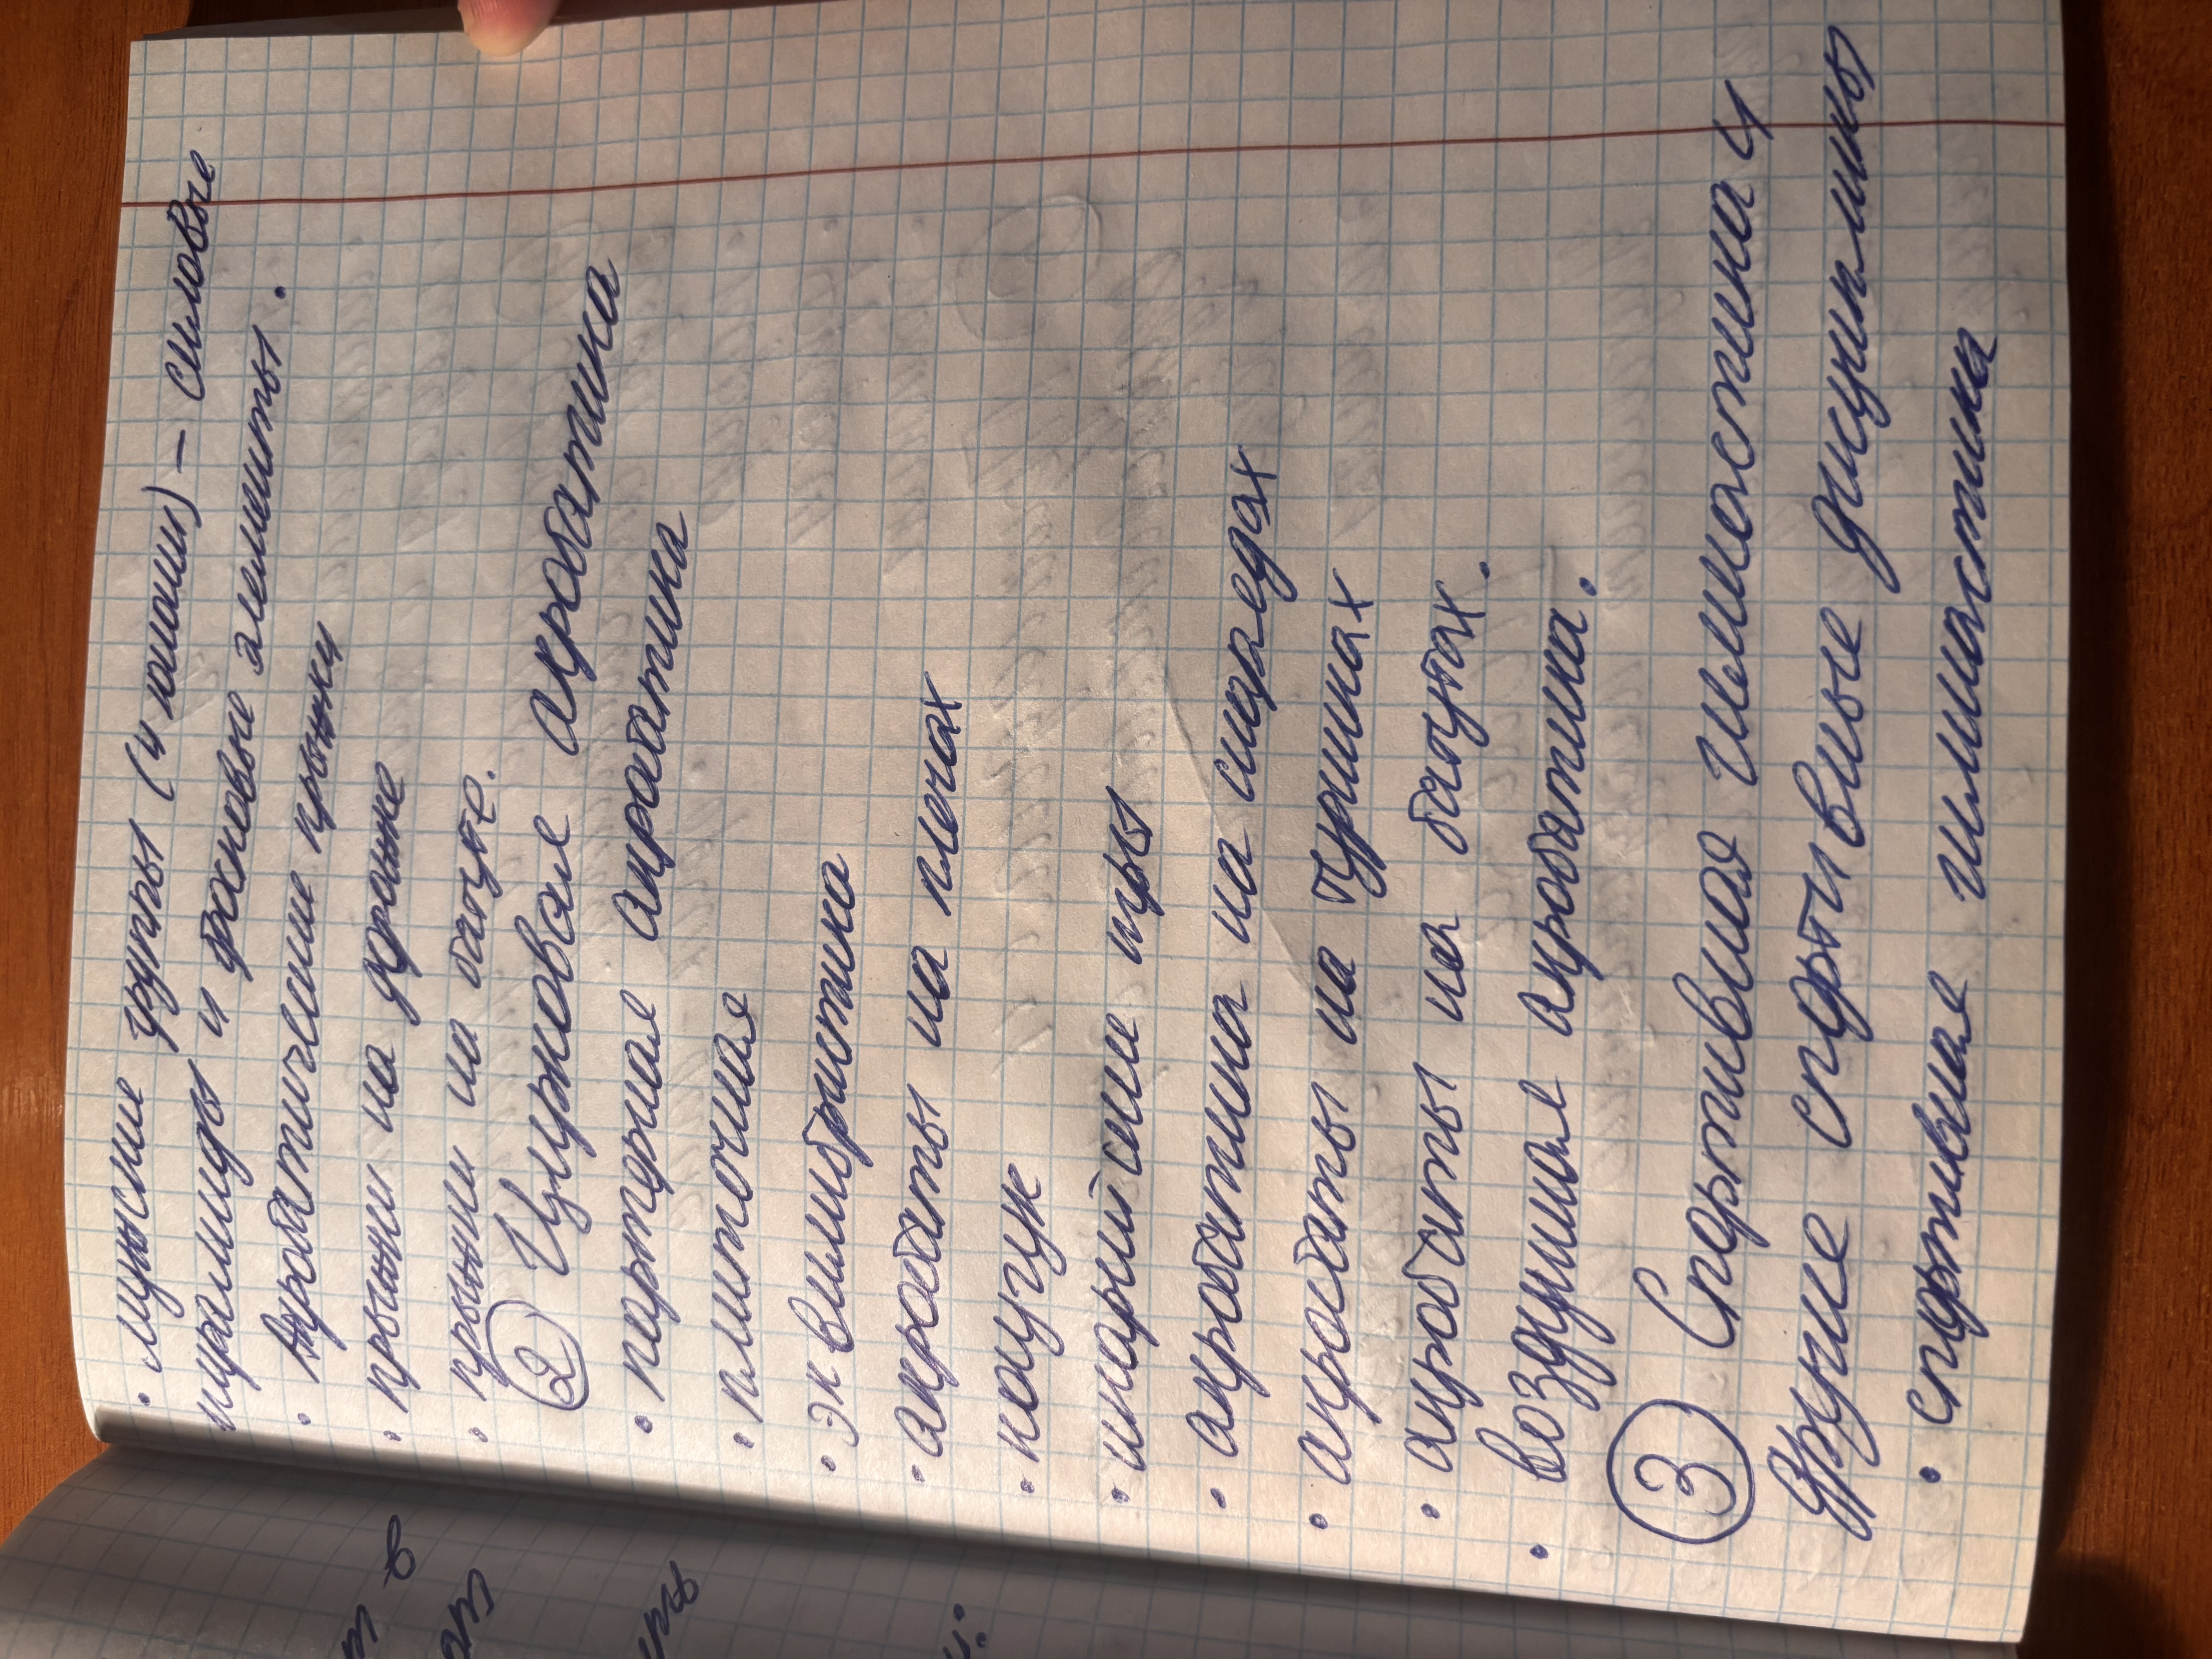 • мужские группы (4 юноши) – силовые
пирамиды и фосковые элементы.
• Акробатические прыжки
• прыжки на дорожке
• прыжки на батуте.
② Цирковая акробатика
• партерная акробатика
• плиточная
• эквилибристика
• акробаты на плечах
• каучук
• икарийские игры
• акробатика на снарядах
• акробаты на турниках
• акробаты на батутах.
• воздушная акробатика.
③ Спортивная гимнастика и
другие спортивные дисциплины
• спортивная гимнастика